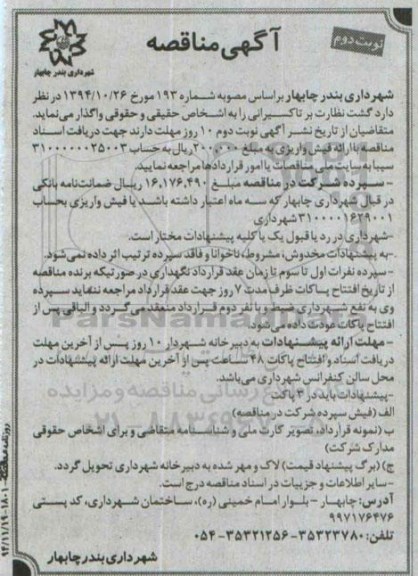 نوبت دوم
آگهی مناقصه
شهرداری بندر چابهار
شهرداری بندر چابهار براساس مصوبه شماره ۱۹۳ مورخ ۱۳۹۴/۱۰/۲۶ در نظر
دارد گشت نظارت بر تاکسیرانی را به اشخاص حقیقی و حقوقی واگذار می‌نماید.
متقاضیان از تاریخ نشر آگهی نوبت دوم ۱۰ روز مهلت دارند جهت دریافت اسناد
مناقصه با ارائه فیش واریزی به مبلغ ۲۰۰،۰۰۰ ریال به حساب ۳۱۰۰۰۰۰۰۲۵۰۰۳
سیبا به سایت ملی مناقصات یا امور قراردادها مراجعه نمایند.
- سپرده شرکت در مناقصه مبلغ ۱۶،۱۷۶،۴۹۰ ریال ضمانت‌نامه بانکی
در قبال شهرداری چابهار که سه ماه اعتبار داشته باشد یا فیش واریزی بحساب
۳۱۰۰۰۰۱۶۲۹۰۰۱ شهرداری
-شهرداری در رد یا قبول یک یا کلیه پیشنهادات مختار است.
-به پیشنهادات مخدوش، مشروط، ناخوانا و فاقد سپرده ترتیب اثر داده نمی‌شود.
-سپرده نفرات اول تا سوم تا زمان عقد قرارداد نگهداری در صورتیکه برنده مناقصه
از تاریخ افتتاح پاکات ظرف مدت ۷ روز جهت عقد قرارداد مراجعه ننماید سپرده
وی به نفع شهرداری ضبط و با نفر دوم قرارداد منعقد می‌گردد و الباقی پس از
افتتاح پاکات عودت داده می‌شود.
- مهلت ارائه پیشنهادات به دبیرخانه شهردار ۱۰ روز پس از آخرین مهلت
دریافت اسناد و افتتاح پاکات ۴۸ ساعت پس از آخرین مهلت ارائه پیشنهادات در
محل سالن کنفرانس شهرداری می‌باشد.
-پیشنهادات باید در ۳ پاکت
الف (فیش سپرده شرکت در مناقصه)
ب (نمونه قرارداد، تصویر کارت ملی و شناسنامه متقاضی و برای اشخاص حقوقی
مدارک شرکت)
ج) (برگ پیشنهاد قیمت) لاک و مهر شده به دبیرخانه شهرداری تحویل گردد.
- سایر اطلاعات و جزییات در اسناد مناقصه درج است.
آدرس: چابهار – بلوار امام خمینی (ره)، ساختمان شهرداری، کد پستی
۹۹۷۱۷۶۴۷۶
تلفن: ۳۵۳۲۳۷۸۰-۳۵۳۲۱۲۵۶-۰۵۴
شهرداری بندر چابهار